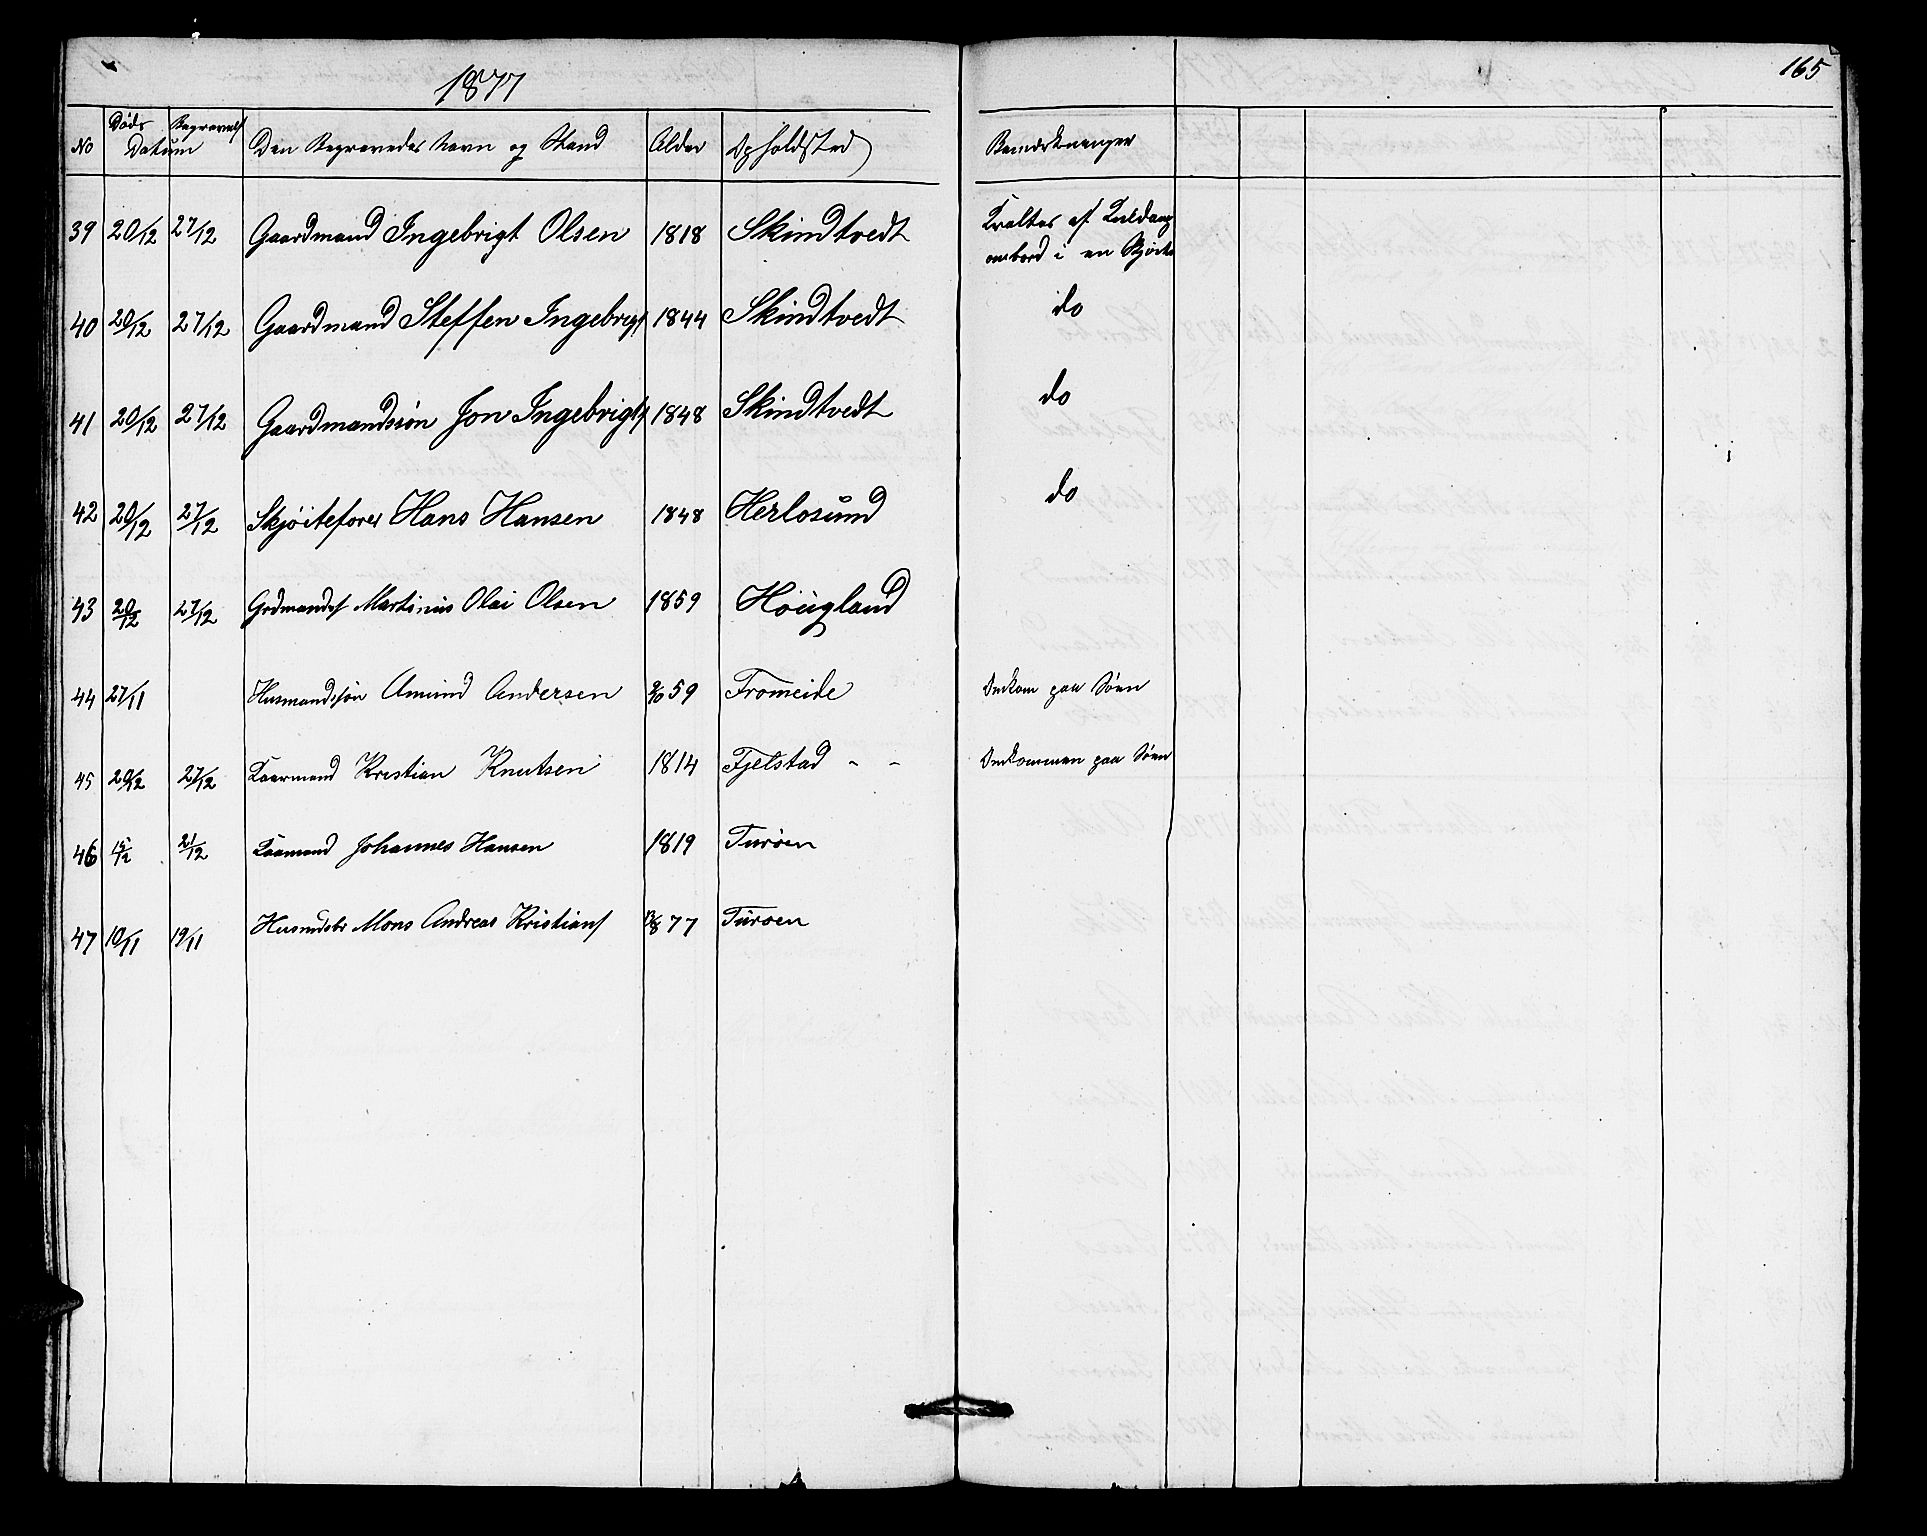 1877
165
No Døds Begravels/ Datum Den Begravedes Navn og Stand Alder Opholdsted Bemærkninger
39 20/12 27/12 Gaardmand Ingebrigt Olsen 1818 Skindtvedt Kvaltes af Kuldamp
ombord i en Skjøite
40 20/12 27/12 Gaardmand Steffen Ingebrigt/ 1844 Skindtvedt do
41 20/12 27/12 Gaardmandssøn Jon Ingebrigts/ 1848 Skindtvedt do
42 20/12 27/12 Skjøitefører Hans Hansen 1848 Herlosund do
43 20/12 27/12 Grdmands/ Martinus Olai Olsen 1859 Høugland
44 27/11 Husmandssøn Amund Andersen 59 Fromeide Omkom paa Søen
45 20/12 27/12 Kaarmand Kristian Knutsen 1814 Fjelstad - - Omkommen paa Søen
46 21/12 Kaarmand Johannes Hansen 1819 Turøen
47 10/11 19/11 Mons Andreas Kristians/ 13/8 77 Turøen